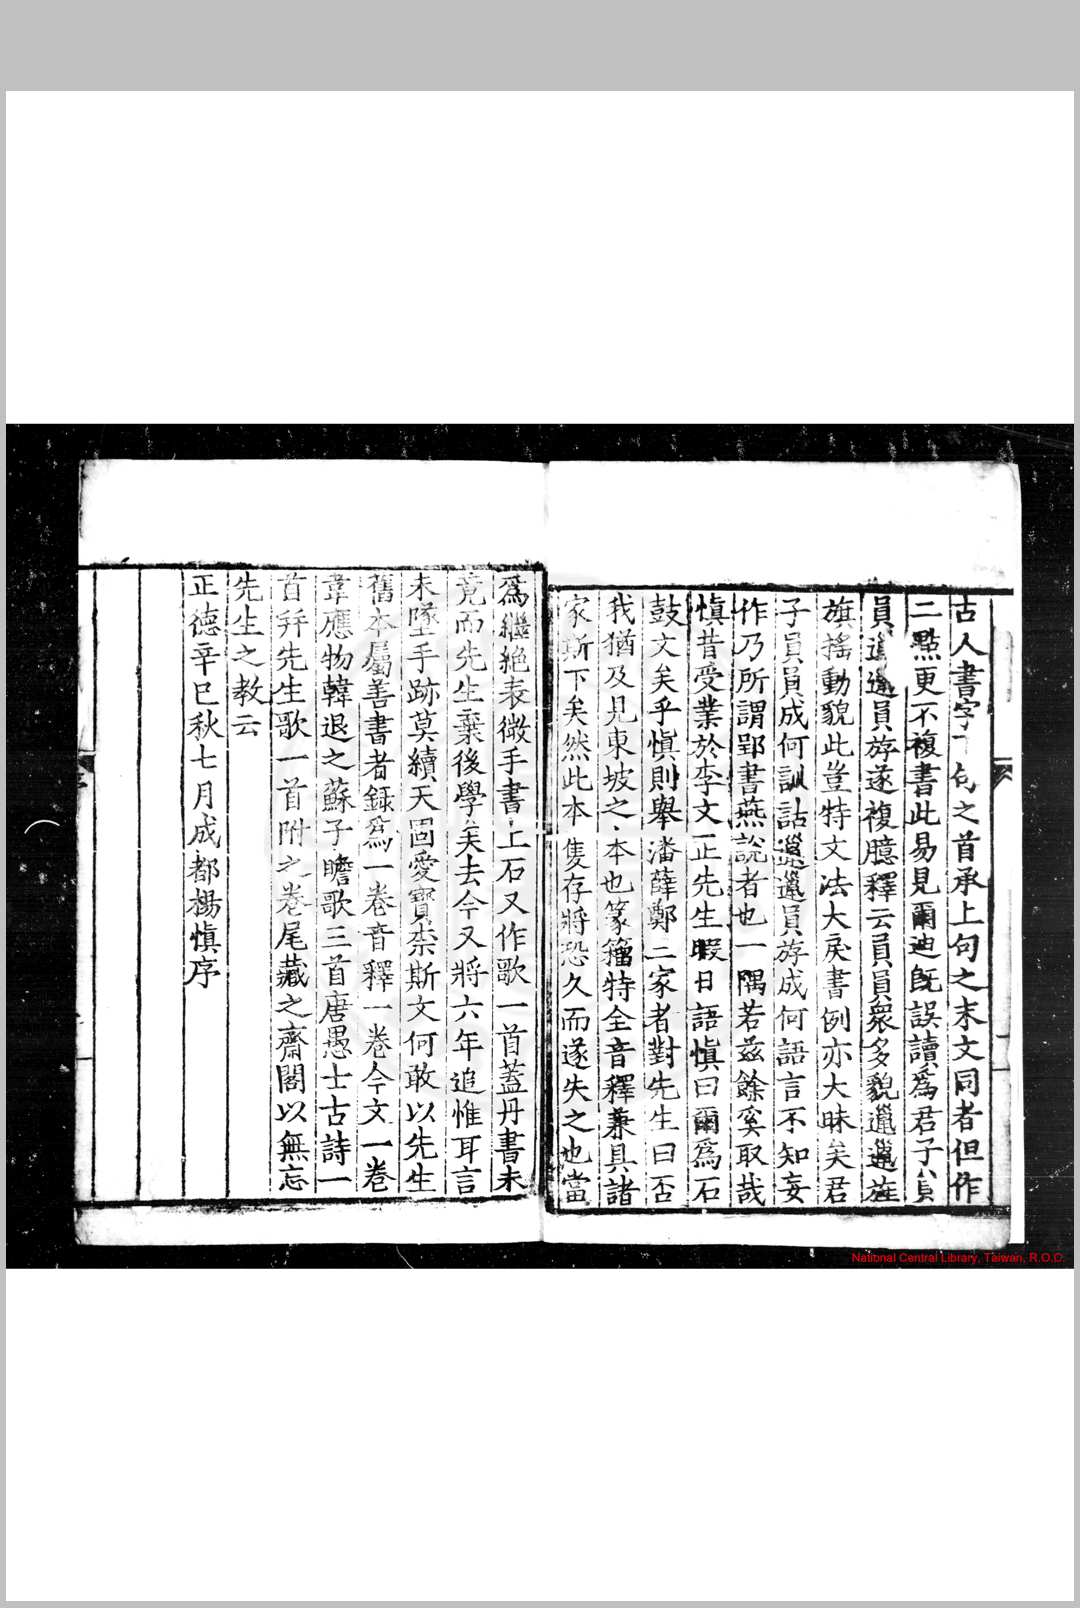 古人書字下句之首承上句之末文同者但作
二點更不複書此易見爾迪既誤讀為君子員
員邋邋員斿遂複臆釋云員員衆多貌邋邋旌
旗搖動貌此豈特文法大戾書例亦大昧矣君
子員員成何訓詁邋邋員斿成何語言不知妄
作乃所謂郢書燕說者也一隅若茲餘奚取哉
慎昔受業於李文正先生暇日語慎曰爾為石
鼓文矣乎慎則舉潘薛鄭二家者對先生曰否
我猶及見東坡之本也篆籀特全音釋兼具諸
家斯下矣然此本隻存將恐久而遂失之也當
為繼絶表微手書上石又作歌一首蓋丹書未
竟而先生棄後學矣去今又將六年追惟耳言
未墜手跡莫續天固愛寶柰斯文何敢以先生
舊本屬善書者録為一卷音釋一卷今文一卷
韋應物韓退之蘇子瞻歌三首唐愚士古詩一
首并先生歌一首附之卷尾藏之齋閣以無忘
先生之教云
正德辛巳秋七月成都楊慎序
National Central Library, Taiwan, R.O.C.